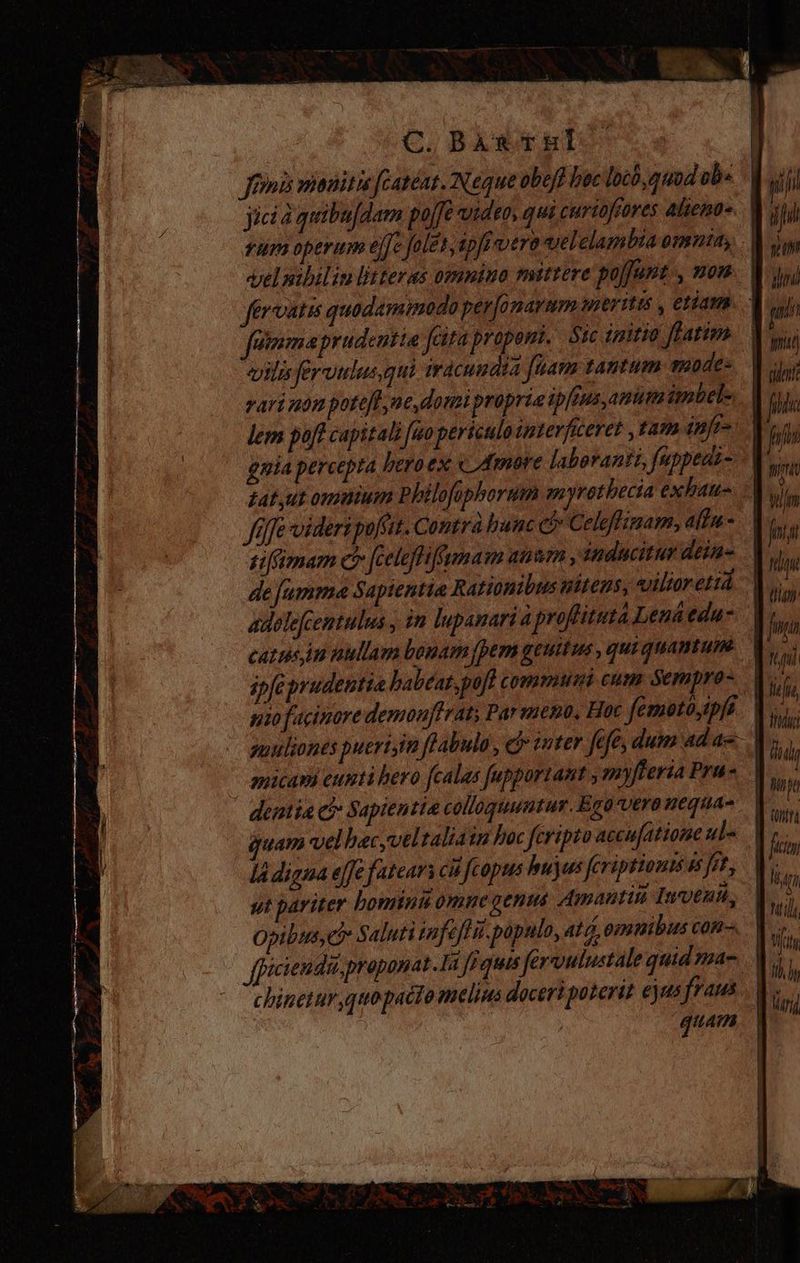 C. BARTHI
ſſimis monitis ſcateat. Neque obeſt hoc locô, quod ob-
jici à quibuſdam poſſe video, qui curioſiores alieno-
rum operum eſſe ſolẽt, ipſi vero vel elambia omnia,
vel nihil in litteras omnino mittere poſſunt, non
ſervatis quodammodo perſonarum meritis, etiam
ſummæ prudentiæ ſcita proponi. Sic initio ſtatim
vilis ſervulus, qui iracundiâ ſuam tantum mode-
rari non poteſt, ne, domi propriæ ipſius, anum imbel-
lem poſt capitali ſuo periculo interficeret, tam inſi-
gnia percepta hero ex Amore laboranti, ſuppedi-
tat, ut omnium Philoſophorum myrothecia exhau-
ſiſſe videri poſſit. Contrà hunc & Celeſtinam, aſtu-
tiſſimam & ſceleſtiſſimam anum, inducitur dein-
de ſumma Sapientiæ Rationibus nitens, vilior etiã
adoleſcentulus, in lupanari à proſtitutâ Lenâ edu-
catus, in nullam bonam ſpem genitus, qui quantum
ipſe prudentiæ habeat, poſt communi cum Sempro-
nio facinore demonſtrat, Parmeno. Hoc ſemotô, ipſi
muliones pueri, in ſtabulo, & inter ſeſe, dum ad a-
micam eunti hero ſcalas ſupportant, myſteria Pru-
dentiæ & Sapientiæ colloquuntur. Ego vero nequa-
quam vel hæc, vel talia in hoc ſcripto accuſatione ul-
lâ digna eſſe fatear; cũ ſcopus hujus ſcriptionis is ſit,
ut pariter hominũ omne genus Amantiũ Iuvenũ,
Opibus, & Saluti infeſtũ populo, atq́; omnibus con-
ſpiciendũ, proponat. Iã ſi quis ſervulus tale quid ma-
chinetur, quo pacto melius doceri poterit ejus fraus
quam